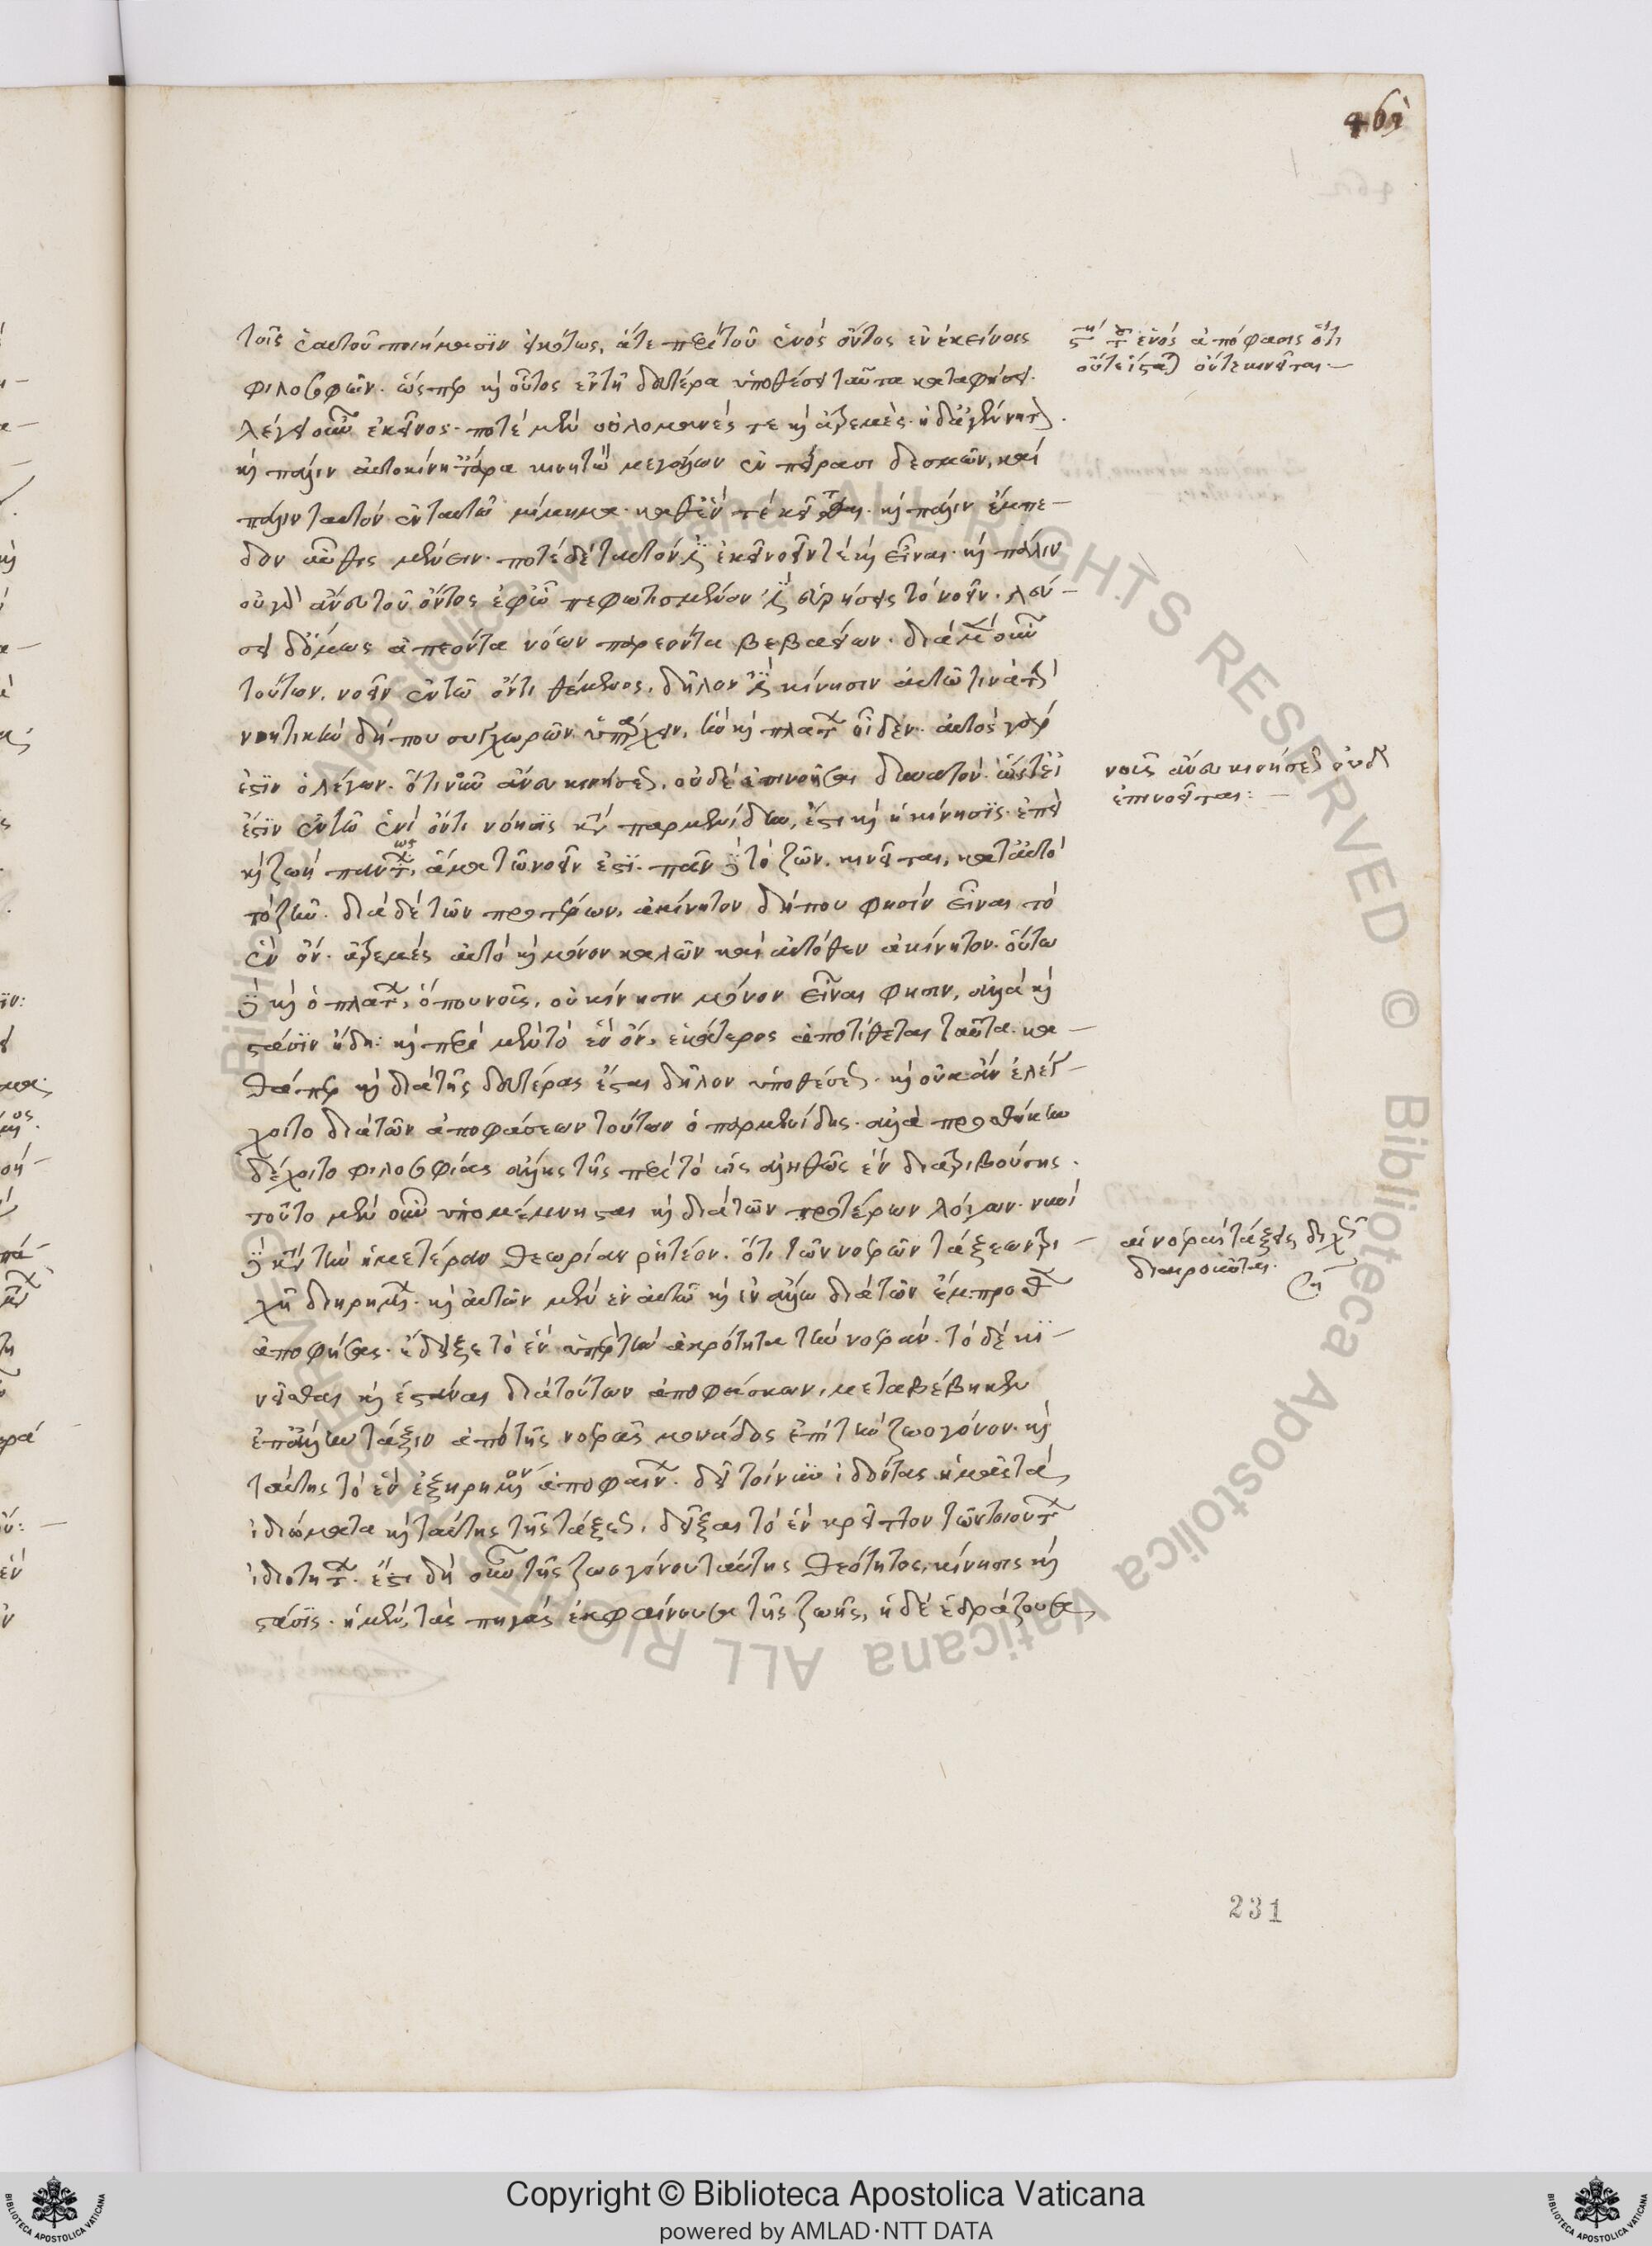 461
τοῖς ἑαυτοῦ ποιήμασιν εἰκότως, ἅτε περὶ τοῦ ἑνὸς ὄντος ἐν ἐκείνοις
φιλοσοφῶν. ὥσπερ καὶ οὗτος ἐν τῇ δευτέρα ὑποθέσει ταῦτα καταφήσει.
λέγει οὖν ἐκεῖνος. ποτὲ μὲν οὐλομενές τε καὶ ἀτρεμὲς
καὶ πάλιν μεγάλων ἐν πείρασι δεσμῶν, καὶ
πάλιν ταυτὸν ἐν ταυτῶ μίμνει καθ' ἑαυτό τε κεῖται. καὶ πάλιν ἔμπε-
δον αὖθις μένειν. ποτὲ δὲ ταυτὸν δ' ἐκεῖ νοεῖν τὲ καὶ εἶναι. καὶ πάλιν
οὐ γὰρ ἄνευ τοῦ ὄντος ἐφ' ᾧ πεφωτισμένον εὑρήσεις τὸ νοεῖν. λεύ-
σει δ' ὅμως ἀπεόντα νόων παρεόντα βεβαίων. διὰ μὲν οὖν
τούτων, νοεῖν ἐν τῶ ὄντι θέμενος, δῆλον ὅτι κίνησιν αὐτῶ τινὰ τὴν
νοητικὴν δήπου συγχωρῶν ὑπάρχειν, ἣν καὶ πλάτων οἶδεν. αὐτὸς γάρ
ἐστιν ὁ λέγων. ὅτι νοῦν ἄνευ κινήσεως, οὐδὲ ἐπινοῆσαι δυνατόν. ὥστε εἴ
ἐστιν ἐν τῶ ἑνὶ ὄντι νόησις κατὰ παρμενίδην, ἔστι καὶ ἡ κίνησις. ἐπεὶ
καὶ ζωὴ πάντως ἅμα τῶ νοεῖν ἐστί. πᾶν δὲ τὸ ζῶν, κινεῖται, κατ' αὐτὸ
τὸ ζῆν. διὰ δὲ τῶν προτέρων, ἀκίνητον δήπου φησὶν εἶναι τὸ
ἓν ὄν. ἀτρεμὲς αὐτὸ καὶ μόνον καλῶν καὶ αὐτόθεν ἀκίνητον. οὕτω
δὲ καὶ ὁ πλάτων, ὅπου νοῦς, οὐ κίνησιν μόνον εἶναι φησιν, ἀλλὰ καὶ
στάσιν ἤδη: καὶ περὶ μὲν τὸ ἓν ὄν, ἑκάτερος ἀποτίθεται ταῦτα. κα-
θάπερ καὶ διὰ τῆς δευτέρας ἔσται δῆλον ὑποθέσεως. καὶ οὐκ ἂν ἐλέγ-
χοιτο διὰ τῶν ἀποφάσεων τούτων ὁ παρμενίδης. ἀλλὰ προσθήκην
δέχοιτο φιλοσοφίας ἄλλης τῆς περὶ τὸ ὡς ἀληθῶς ἓν διατριβούσης.
τοῦτο μὲν οὖν ὑπομέμνησται καὶ διὰ τῶν προτέρων λόγων. νυνὶ
δὲ κατὰ τὴν ἡμετέραν θεωρίαν ῥητέον. ὅτι τῶν νοερῶν τάξεων τρι-
χῆ διῃρημένων. καὶ αὐτῶν μὲν ἐν αὐτῶ καὶ ἐν ἄλλω διὰ τῶν ἔμπροσθεν
ἀποφήσας. ἔδειξε τὸ ἓν ὑπὲρ τὴν ἀκρότητα τὴν νοεράν. τὸ δὲ κι-
νεῖσθαι καὶ ἑστάναι διὰ τούτων ἀποφάσκων, μεταβέβηκεν
ἐπ' ἄλλην τάξιν ἀπὸ τῆς νοερᾶς μονάδος ἐπὶ τὴν ζωογόνον. καὶ
ταύτης τὸ ἓν ἐξῃρημένον ἀποφαίνων. δεῖ τοίνυν ἰδόντας ἡμᾶς τὰ
ἰδιώματα καὶ ταύτης τῆς τάξεως, δεῖξαι τὸ ἓν κρεῖττον τῶν τοιούτων
ἰδιοτήτων. ἔστι δὴ οὖν τῆς ζωογόνου ταύτης θεότητος, κίνησις καὶ
στάσις. ἡ μὲν, τὰς πηγὰς ἐκφαίνουσα τῆς ζωῆς, ἡ δὲ ἑδράζουσα
ἑνός ἀπόφασις ὅτι
οὔτε ἵσταται οὔτε κινεῖται.
νοῦς ἄνευ κινήσεως οὐδὲ
ἐπινοεῖται:
αἱ νοεραὶ τάξεις τριχῆ
διῃροῦνται.
231
Copyright © Biblioteca Apostolica Vaticana
powered by AMLAD·NTT DATA